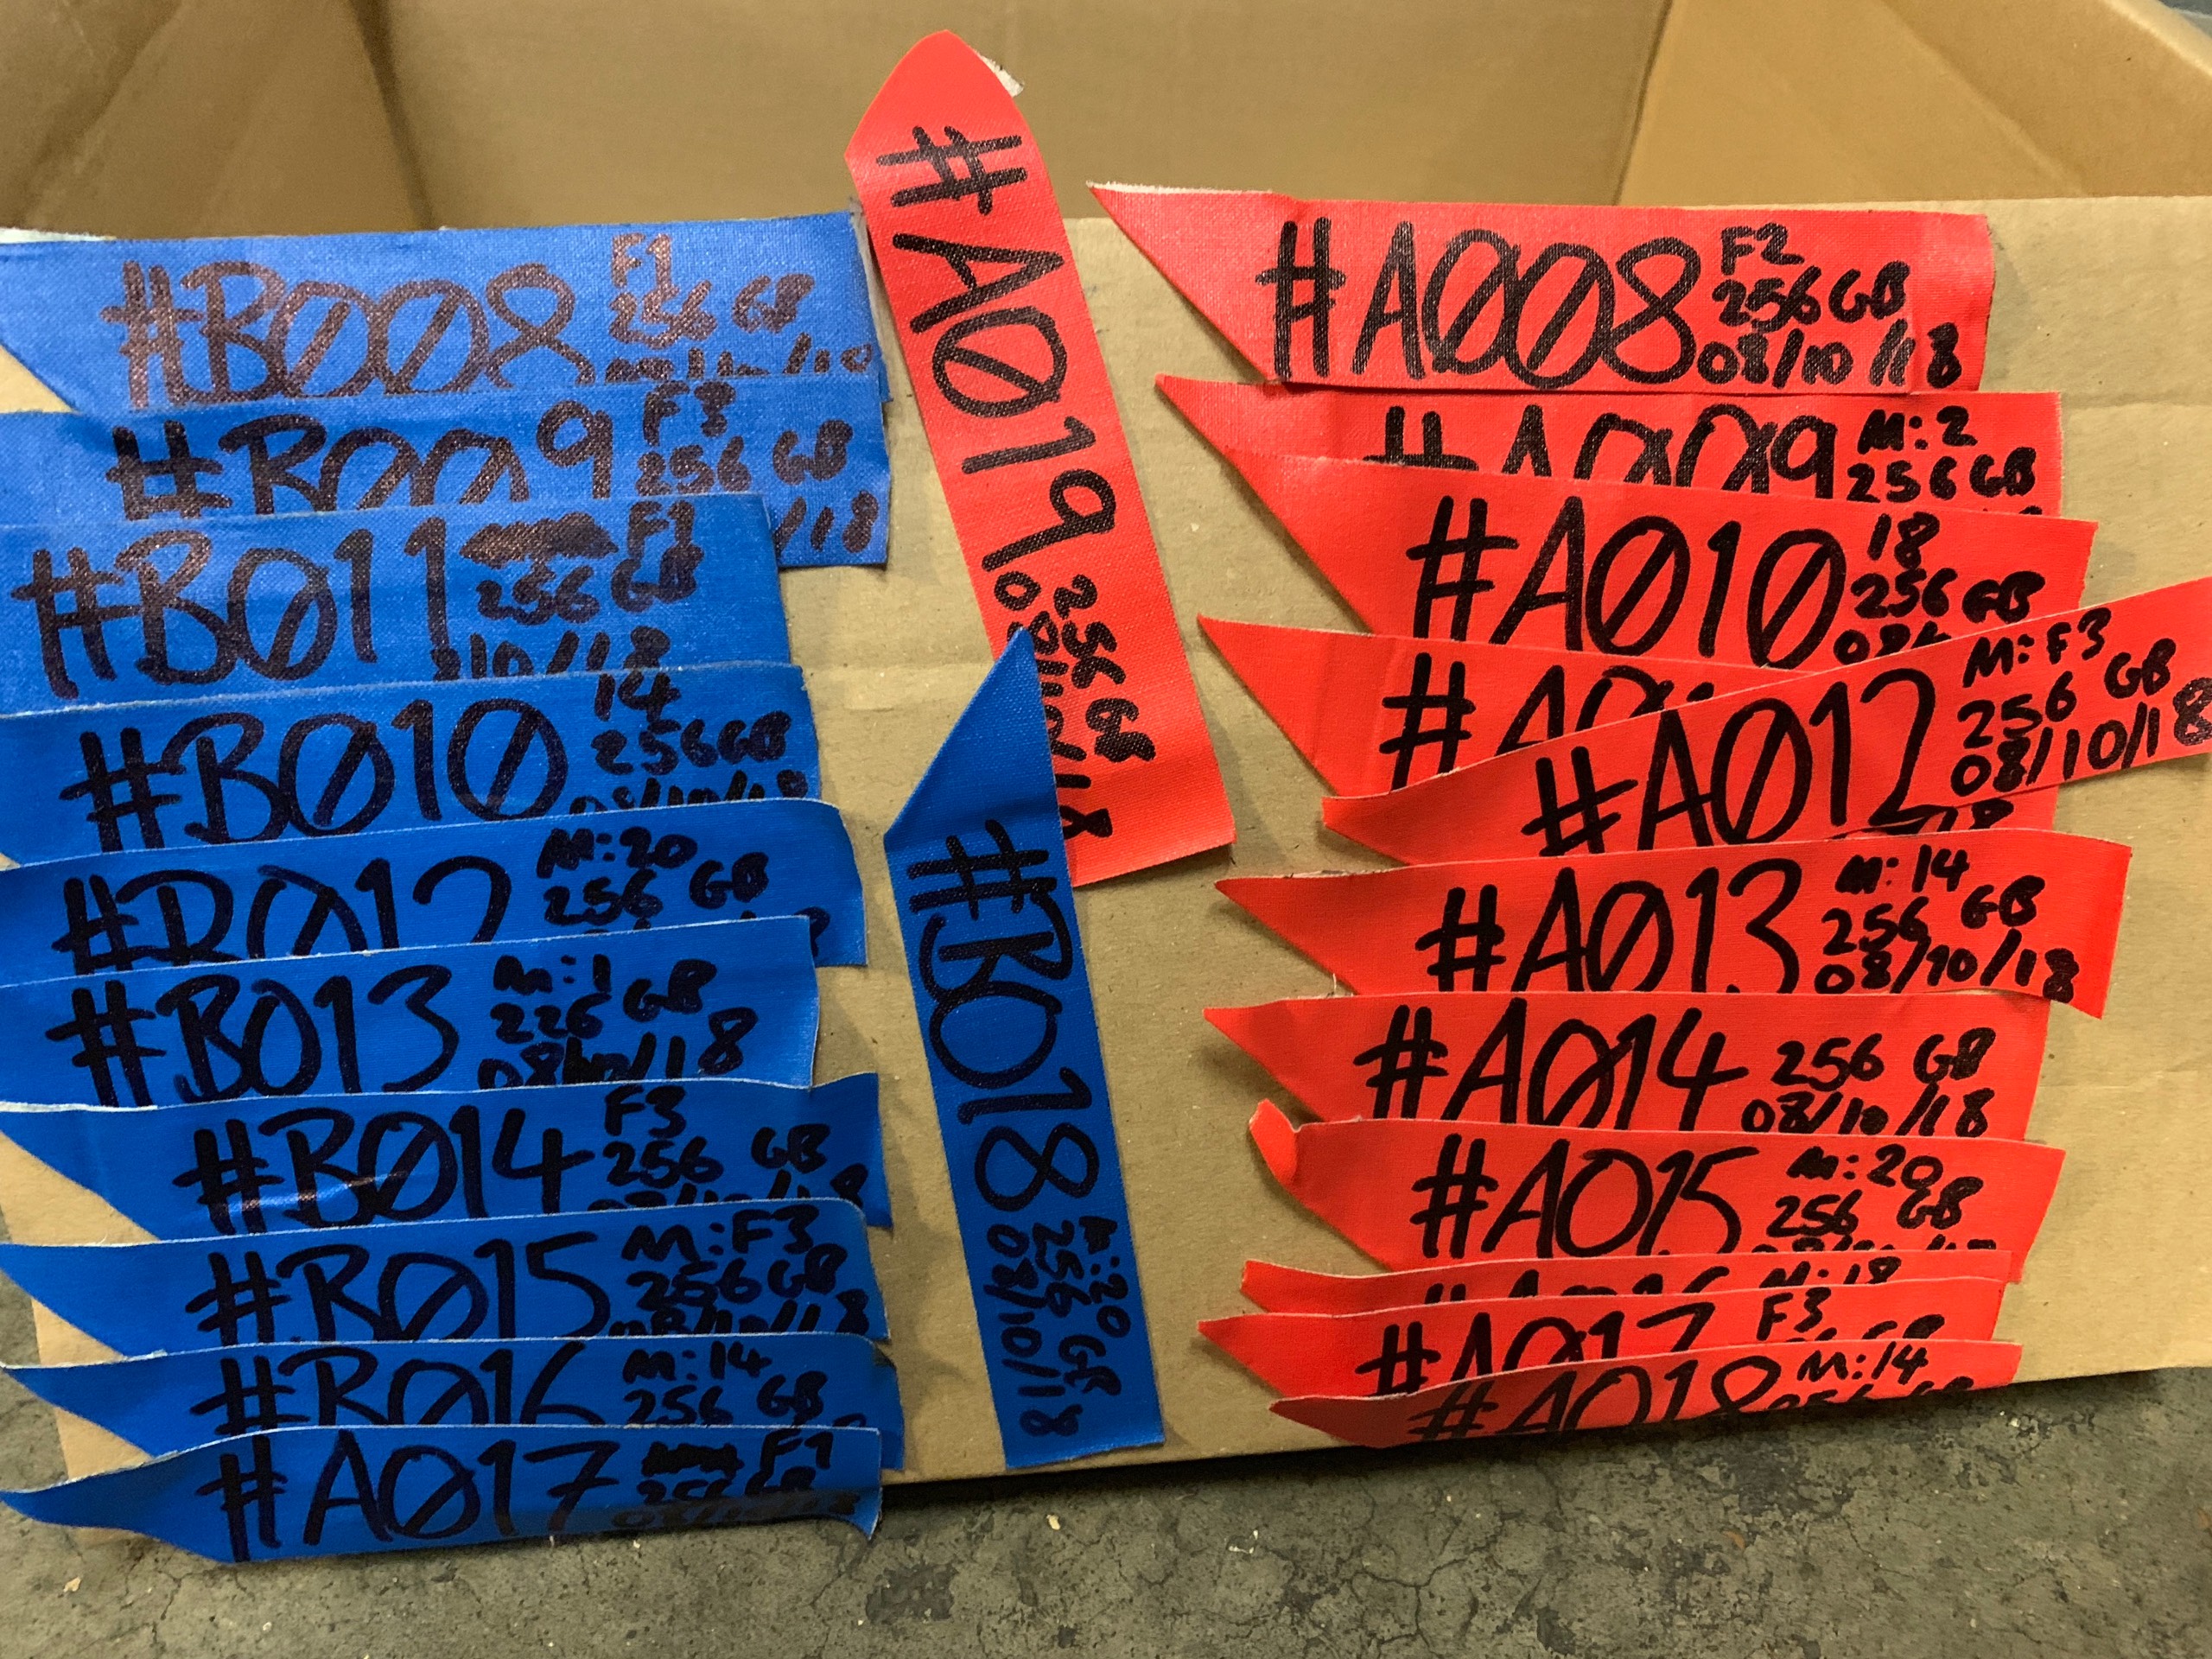 #B008
F1
256 GB
#B009
F3
256 GB
/18
#B011
F1
256 GB
/10/18
#B010
14
256GB
08/10/18
#B012
M:20
256 GB
#B013
M:1
226 GB
08/10/18
#B014
F3
256 GB
08/10/18
#B015
M:F3
256 GB
08/10/18
#B016
M:14
256 GB
#A017
F1
#A019
256 GB
08/10/18
#B018
M:20
256 GB
08/10/18
#A008
F2
256 GB
08/10/18
#A009
M:2
256 GB
#A010
18
256 GB
#A0
#A012
M:F3
256 GB
08/10/18
#A013
M:14
256 GB
08/10/18
#A014
256 GB
08/10/18
#A015
M:20
256 GB
08/10/18
#A016
M:18
#A017
F3
#A018
M:14
256 GB